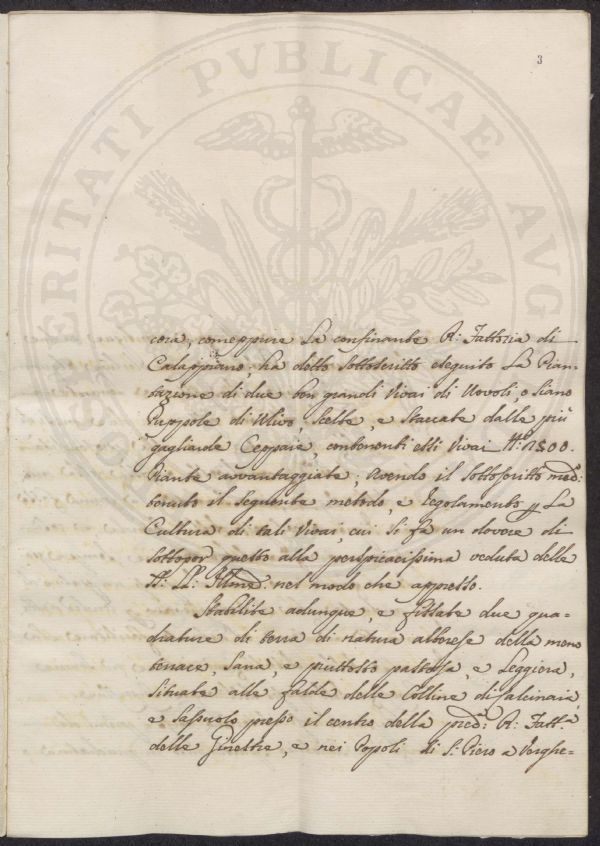 3
PROSPERITATI PVBLICAE AVG
cora, comeppure La confinante R: Fattoria di
Calappiano, ha detto Sottoscritto eseguito La Pian-
tazione di due ben grandi Vivai di Uovoli, o siano
Puppole di Ulivo, Scelte, e Staccate dalle più
gagliarde Ceppaie, contenenti essi Vivai
Piante avvantaggiate, avendo il Sottoscritto med:
tenuto il seguente metodo, e regolamento p La
Cultura di tali Vivai, cui si fa un dovere di
sottopor questo alla perspicacissima veduta delle
LL: Illme: nel modo che appresso.
Stabilite adunque, e fissate due qua-
drature di terra di natura alberese della meno
tenace, Sana, e piuttosto pastosa, e Leggiera,
Situate alle falde delle Colline di Salcinaia,
e Sassuolo presso il centro della pred: R: Fatt.a
delle Ginestre, e nei Popoli di S: Piero a Verghe-